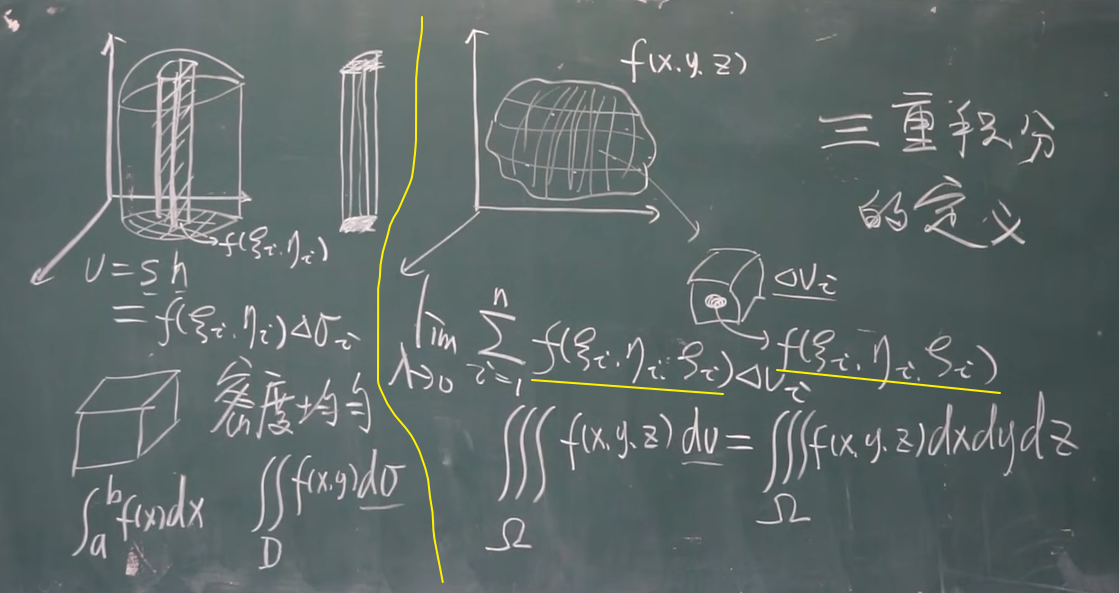 f(ξᵢ,ηᵢ)
υ=sh
=f(ξᵢ.ηᵢ)Δσᵢ
密度均匀
∫ₐᵇf(x)dx
∬_D f(x,y)dσ
f(x,y,z)
三重积分
的定义
ΔVᵢ
f(ξᵢ,ηᵢ,ξᵢ)
lim_{λ→0} ∑_{i=1}^{n} f(ξᵢ,ηᵢ,ξᵢ)ΔVᵢ
∭_Ω f(x,y,z)dv=∭_Ω f(x,y,z)dxdydz